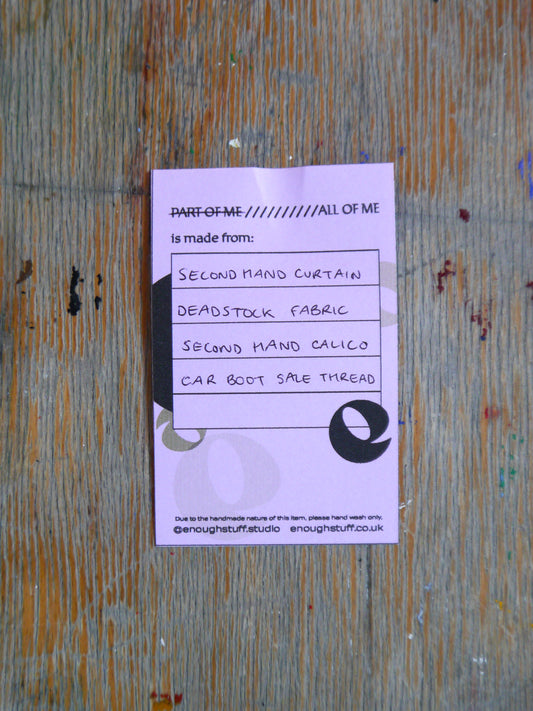 PART OF ME //////////ALL OF ME
is made from:
SECOND HAND CURTAIN
DEADSTOCK FABRIC
SECOND HAND CALICO
CAR BOOT SALE THREAD
Due to the handmade nature of this item, please hand wash only.
@enoughstuff.studio enoughstuff.co.uk